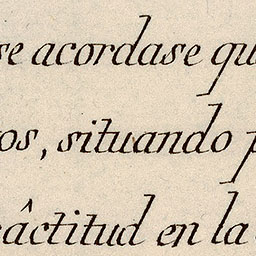 se acordase qu
os, situando p
âctitud en la